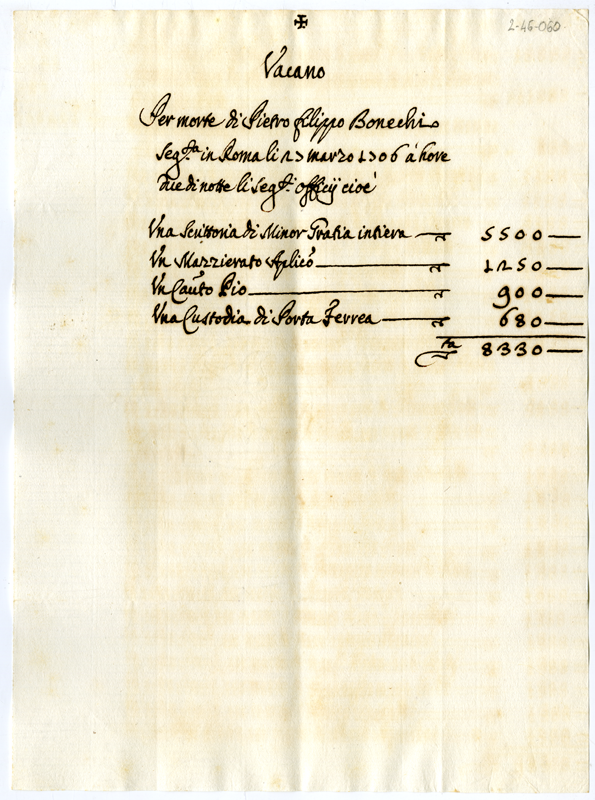 ✠
2-46-060
Vacano
Per morte di Pietro filippo Bonechi
seg.ta in Roma li 23 marzo 1706 à hore
due di notte li seg.ti officij cioè
Una scrittoria di Minor Gratia intiera — 5500 —
Un Mazzierato Aplico — 1250 —
Un Cauto Pio — 900 —
Una Custodia di Porta Ferrea — 680 —
8330 —